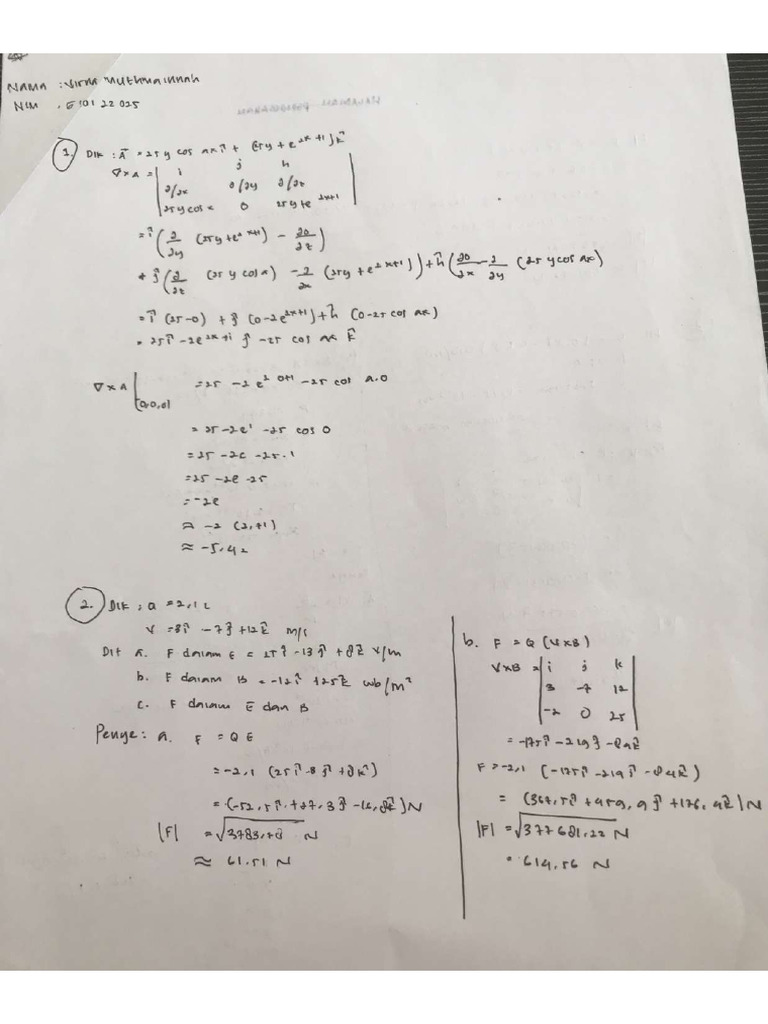 NAMA : Virna Muthmainnah
NIM : E 101 22 025
1. Dik : A⃗ = 25 y cos ax î + (25y + e^(2x+1)) k̂
∇ x A = | i j k
∂/∂x ∂/∂y ∂/∂z
25 y cos x 0 25y+e^(2x+1) |
= î (∂/∂y (25y+e^(2x+1)) - ∂0/∂z)
+ ĵ (∂/∂z (25 y cos x) - ∂/∂x (25y + e^(2x+1))) + k̂ (∂0/∂x - ∂/∂y (25 y cos ax)
= î (25-0) + ĵ (0-2e^(2x+1)) + k̂ (0-25 cos ax)
= 25î - 2e^(2x+1) ĵ - 25 cos ax k̂
∇ x A |(0,0,0) = 25 - 2e^(2 0+1) - 25 cos a.0
= 25 - 2e¹ - 25 cos 0
= 25 - 2e - 25.1
= 25 - 2e - 25
= -2e
≈ -2 (2,71)
≈ -5,42
2. Dik : Q = 2,1 C
V = 3î - 7ĵ + 12k̂ m/s
Dit a. F dalam E = 25î - 13ĵ + 8k̂ V/m
b. F dalam B = -12î + 25k̂ wb/m²
c. F dalam E dan B
Penye : a. F = Q E
= -2,1 (25î - 8ĵ + 8k̂)
= (-52,5î + 27,3ĵ - 16,8k̂) N
|F| = √3783,78 N
≈ 61.51 N
b. F = Q (V x B)
V x B = | i j k
3 -7 12
-2 0 25 |
= -175î - 219ĵ - 84k̂
F = -2,1 (-175î - 219î - 84k̂)
= (367,5î + 459,9ĵ + 176,4k̂) N
|F| = √377681,22 N
= 614,56 N